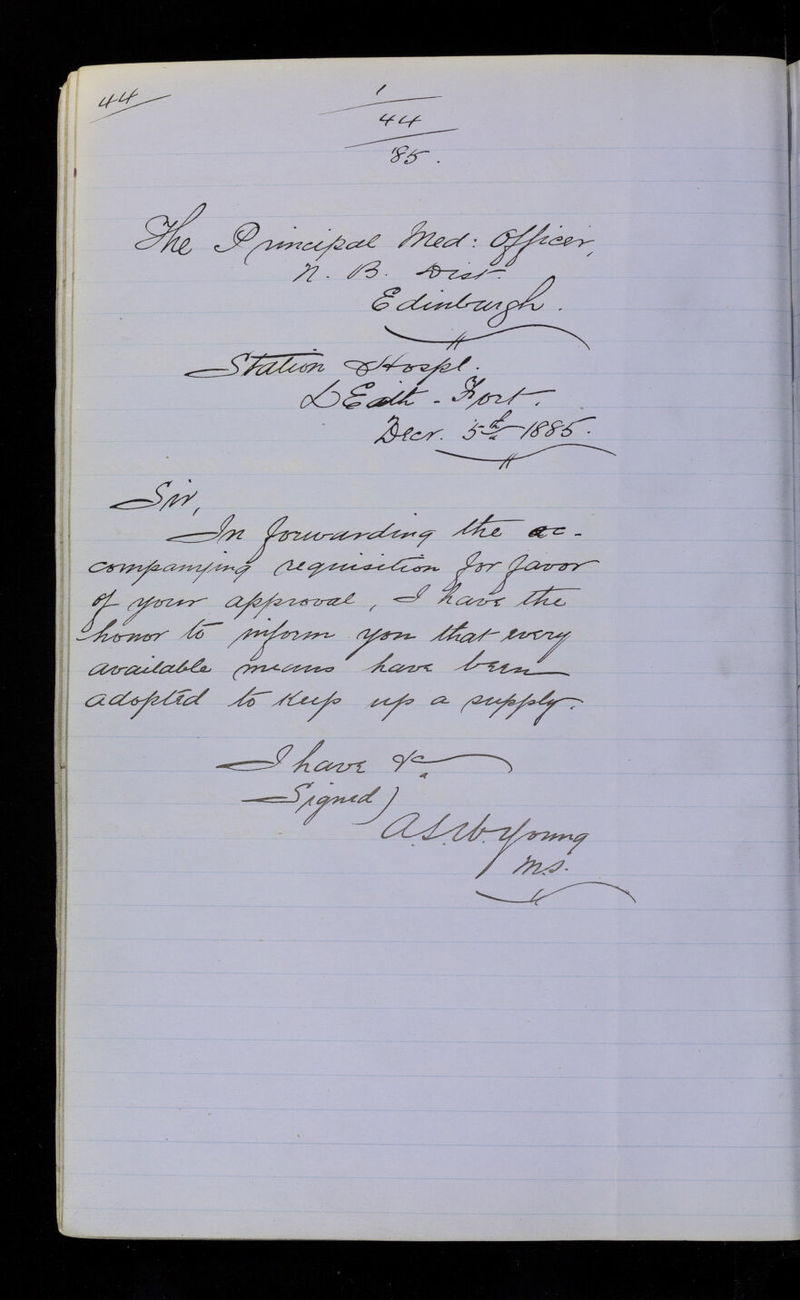 44
1
44
85.
The Principal Med: Officer,
N. B. Dist.
Edinburgh.
Station Hospl.
Leith - Fort.
Decr. 5th 1885.
Sir,
In forwarding the ac-
companying requisition for favor
of your approval, I have the
honor to inform you that every
available means have been
adopted to keep up a supply.
I have &c
Signed)
A.S.W. Young
M.S.